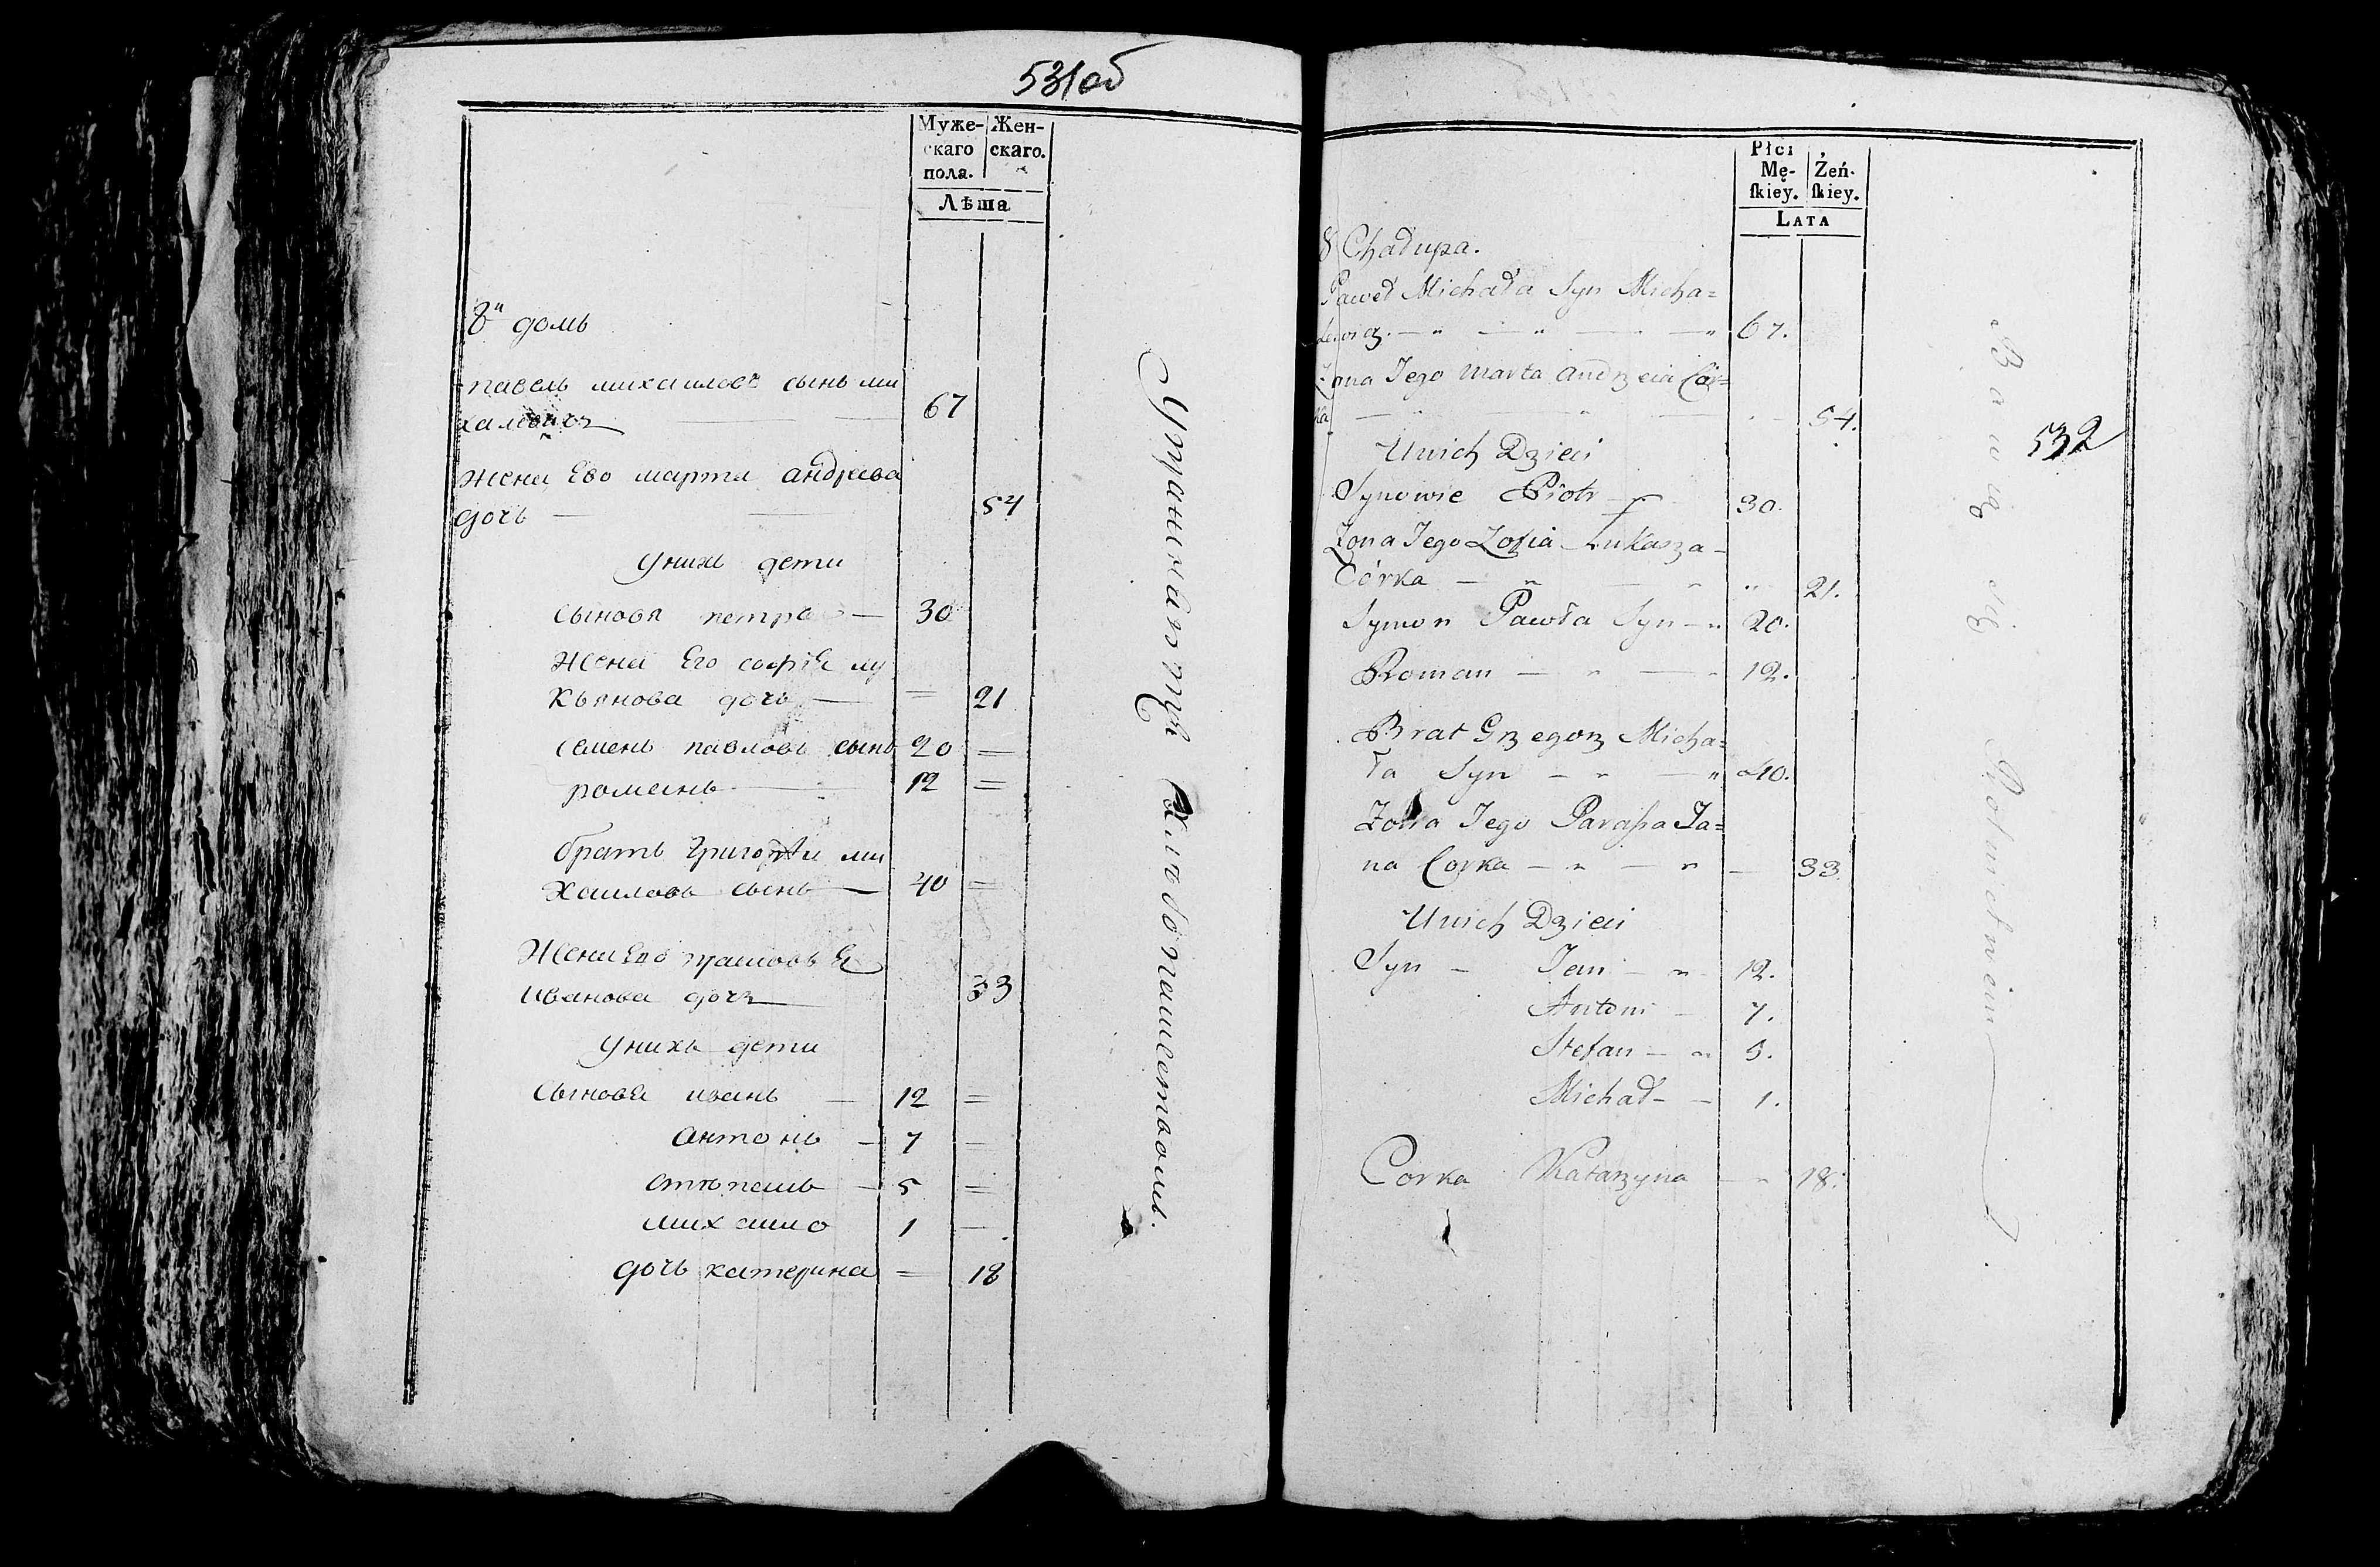 531об
Муже- Жен-
скаго скаго.
пола.
Лѣта
8й домъ
павелъ михаиловъ сынъ ми
халевичъ — — 67
жена Ево марта андреева
дочь — — 54
Унихъ дети
сыновя петра — 30
жена Его софіе лу
кьянова дочь — = 21
семенъ павловъ сынъ 20 =
романъ — 12 =
братъ григорѣи ми
хаиловъ сынъ — 40 =
жена Его
иванова дочь — 33
Унихъ дети
сыновя иванъ — 12 =
антонъ — 7 —
степанъ — 5 =
михаило 1 —
дочь катерина = 18
Упражняютця хлебопашествомъ.
Płci
Mę- Żeń-
ſkiey. ſkiey.
LATA
532
8 Chałupa.
Paweł Michała Syn Micha=
lewicz. — " — " — " 67.
Żona Jego Marta Andrzeia Cór=
ka — " — " — 54.
Unich Dzieci
Synowie Piotr — 30.
Żona Jego Zofia Łukasza —
Córka — " — " " 21.
Symon Pawła Syn — " 20.
Roman — " — " 12.
Brat Grzegorz Micha=
ła Syn — " — " 40.
Żona Jego Parasza Ja=
na Corka — " — " — 33
Unich Dzieci
Syn — Jan — " 12.
Antoni — 7.
Stefan — " 5.
Michał — — 1.
Corka Katarzyna — " 18.
Bawią się Rolnictwem